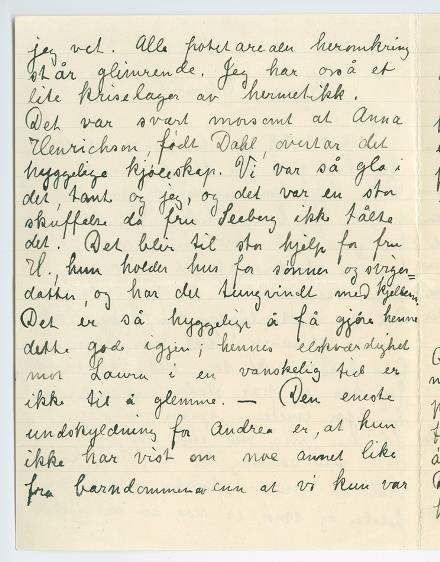 jeg vet. Alle potetarealer heromkring
står glimrende. Jeg har også et
lite kriselager av hermetikk.
Det var svært morsomt at Anna
Henrichson, født Dahl, overtar det
hyggelige kjøleskap. Vi var så gla i
det, tant og jeg, og det var en stor
skuffelse da fru Seeberg ikke tålte
det. Det blir til stor hjelp for fru
H., hun holder hus for sønner og sviger=
datter, og har det tungvindt med kjelleren.
Det er så hyggelig å få gjøre henne
dette gode igjen; hennes elskværdighet
mot Laura i en vanskelig tid er
ikke til å glemme. — Den eneste
undskyldning for Andrea er, at hun
ikke har vist om noe annet like
fra barndommen av enn at vi kun var